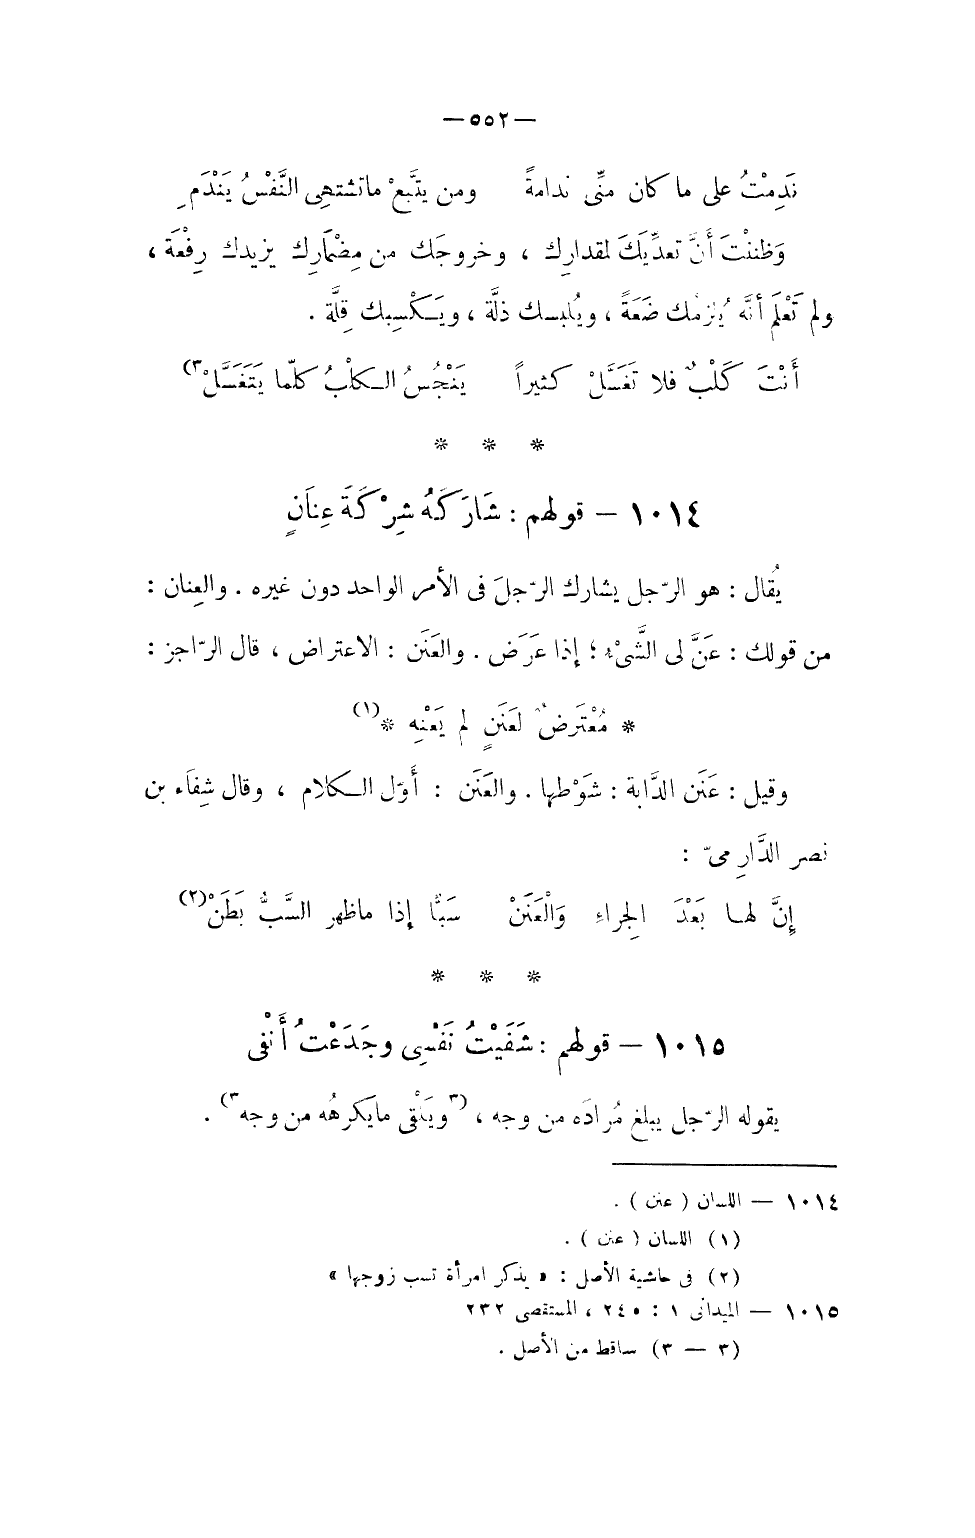 —٥٥٢—
نَدِمْتُ على ما كان منِّى ندامةً ومن يتَّبعْ ماتشتهى النَّفْسُ يَنْدَمِ
وَظننْتَ أَنَّ تعدِّيَكَ لمقدارِك ، وخروجَك من مِضْمَارِك يزيدك رِفْعَة ،
ولم تَعْلَم أنَّه يُلزِمُك ضَعَةً ، ويُلبسك ذلَّة ، ويَكْسِبك قِلَّة .
أَنْتَ كَلْبٌ فلا تَغَسَّلْ كثيراً يَنْجُسُ الكلْبُ كلّما يَتَغَسَّلْ (٣)
* * *
١٠١٤ – قولهم : شَارَكَهُ شِرْكَةَ عِنَانٍ
يُقال : هو الرّجل يشارك الرّجلَ فى الأمر الواحد دون غيره . والعِنان :
من قولك : عَنَّ لى الشَّىْء ؛ إذا عَرَض . والعَنَن : الاعتراض ، قال الرّاجز :
* مُعْتَرضٌ لعَنَنٍ لم يَعْنِه * (١)
وقيل : عَنَن الدَّابة : شَوْطها . والعَنَن : أَوّل الكلام ، وقال شِفَاء بن
نصر الدَّارِمىّ :
إِنَّ لها بَعْدَ الجِراءِ وَالْعَنَنْ سَبًّا إذا ماظهر السَّبُّ بَطَنْ (٢)
* * *
١٠١٥ – قولهم : شَفَيْتُ نَفْسِى وجَدَعْتُ أَنْفى
يقوله الرّجل يبلغ مُرادَه من وجه ، (٣ويَلْقى مايكرهُه من وجه٣) .
١٠١٤ – اللسان ( عنن ) .
(١) اللسان ( عنن ) .
(٢) فى حاشية الأصل : « يذكر امرأة تسب زوجها »
١٠١٥ – الميدانى ١ : ٢٤٥ ، المستقصى ٢٣٢
(٣ – ٣) ساقط من الأصل .